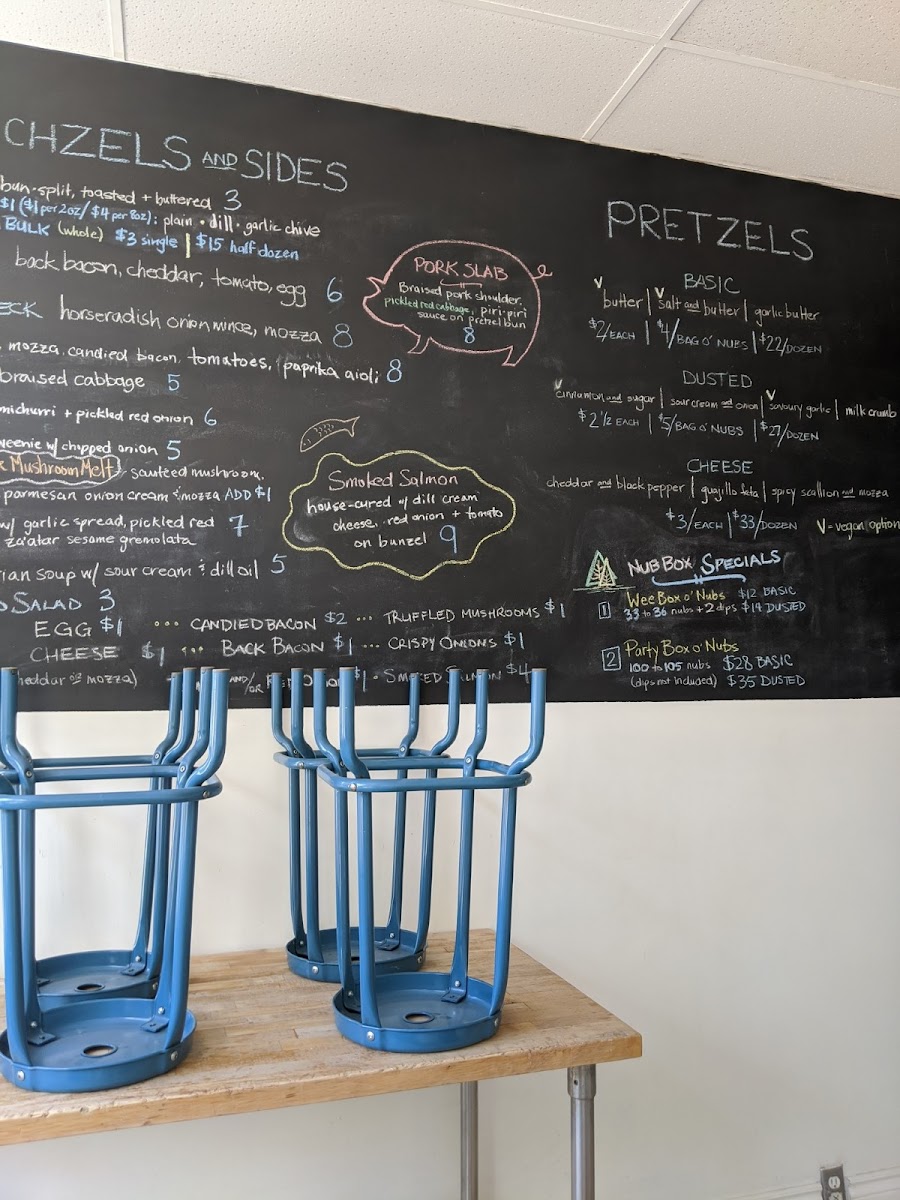 CHZELS AND SIDES
bun-split, toasted + buttered 3
$1 ($1 per 2oz/$4 per 8oz): plain • dill • garlic chive
BULK (whole) $3 single | $15 half dozen
back bacon, cheddar, tomato, egg 6
ECK horseradish onion mince, mozza 8
mozza, candied bacon, tomatoes, paprika aioli 8
braised cabbage 5
michurri + pickled red onion 6
weenie w/ chopped onion 5
Mushroom Melt sauteed mushroom,
parmesan onion cream & mozza ADD $1
w/ garlic spread, pickled red 7
za'atar sesame gremolata
ian soup w/ sour cream & dill oil 5
SALAD 3
EGG $1 ••• CANDIED BACON $2 ••• TRUFFLED MUSHROOMS $1
CHEESE $1 ••• BACK BACON $1 ••• CRISPY ONIONS $1
heddar or mozza) AND/OR $1 • SMOKED $4
PORK SLAB
Braised pork shoulder,
pickled red cabbage, piri-piri
sauce on pretzel bun
8
Smoked Salmon
house-cured w/ dill cream
cheese, red onion + tomato
on bunzel 9
PRETZELS
BASIC
V butter | V salt and butter | garlic butter
$2/EACH | $4/BAG O' NUBS | $22/DOZEN
DUSTED
V cinnamon and sugar | sour cream and onion | V savoury garlic | milk crumb
$2 1/2 EACH | $5/BAG O' NUBS | $27/DOZEN
CHEESE
cheddar and black pepper | guajillo feta | spicy scallion and mozza
$3/EACH | $33/DOZEN V = vegan option
NUB BOX SPECIALS
1 Wee Box o' Nubs $12 BASIC
33 to 36 nubs + 2 dips $14 DUSTED
2 Party Box o' Nubs
100 to 105 nubs $28 BASIC
(dips not included) $35 DUSTED